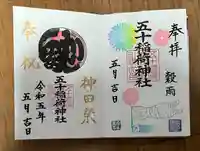 奉拝
穀雨
五十稲荷神社
五月吉日
神田祭
五十稲荷神社
奉祝
令和五年
五月吉日